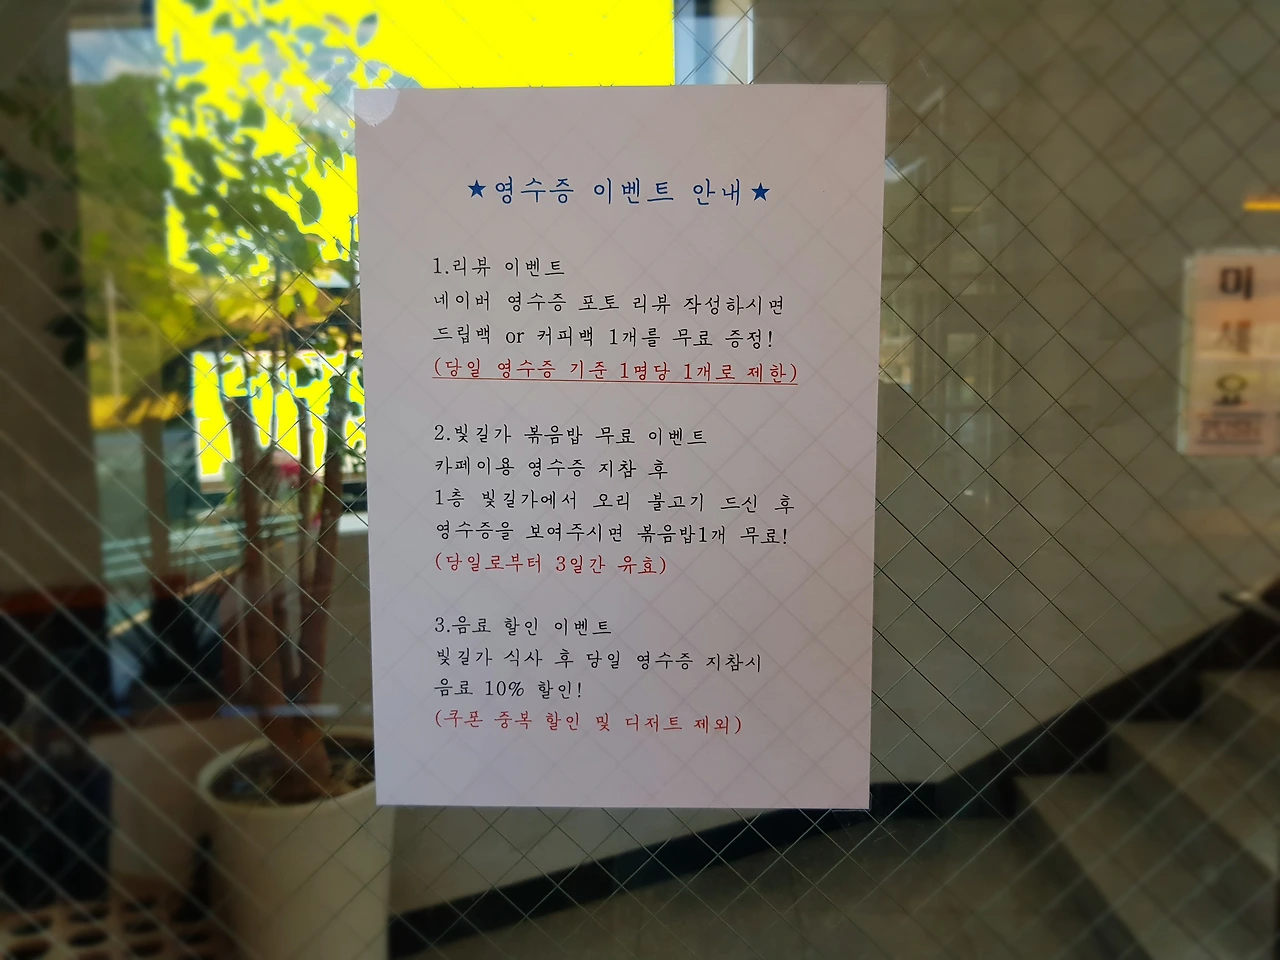 ★영수증 이벤트 안내★
1.리뷰 이벤트
네이버 영수증 포토 리뷰 작성하시면
드립백 or 커피백 1개를 무료 증정!
(당일 영수증 기준 1명당 1개로 제한)
2.빛길가 볶음밥 무료 이벤트
카페이용 영수증 지참 후
1층 빛길가에서 오리 불고기 드신 후
영수증을 보여주시면 볶음밥1개 무료!
(당일로부터 3일간 유효)
3.음료 할인 이벤트
빛길가 식사 후 당일 영수증 지참시
음료 10% 할인!
(쿠폰 중복 할인 및 디저트 제외)
미
세
요